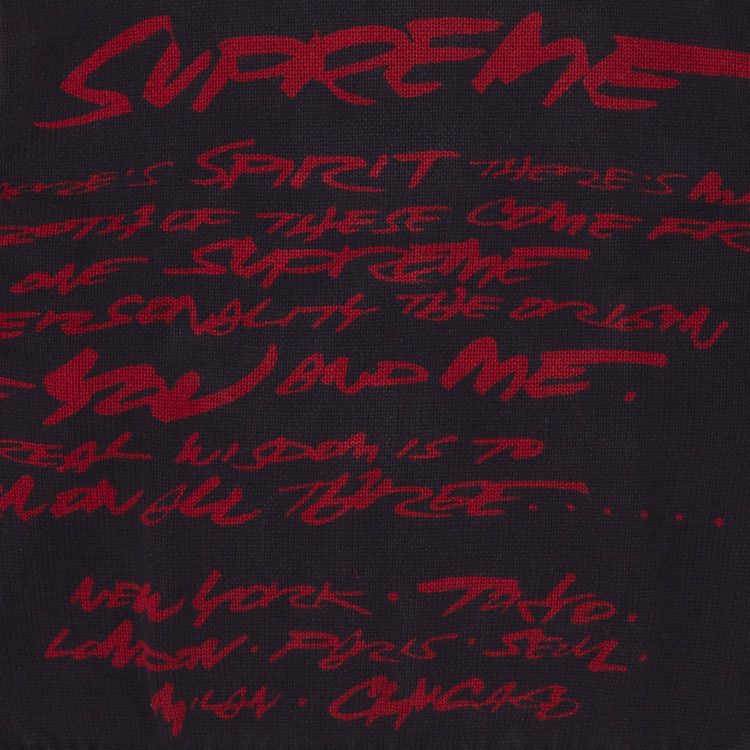 SUPREME
THERE'S SPIRIT THERE'S
DEPTH OF THESE COME FR
ONE SUPREME
PERSONALITY THE ORIGIN
YOU AND ME.
REAL WISDOM IS TO
ON ALL THREE......
NEW YORK. TOKYO.
LONDON. PARIS. SEOUL.
MILAN. CHICAGO